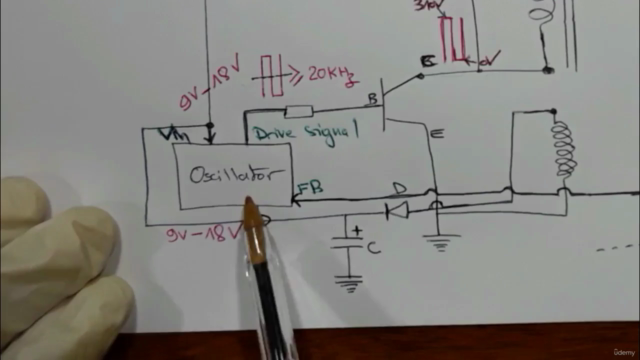 310V
0V
9V-18V
≥ 20KHz
B
E
Vin
Drive signal
E
Oscillator
FB
D
9V-18V
+
C
udemy